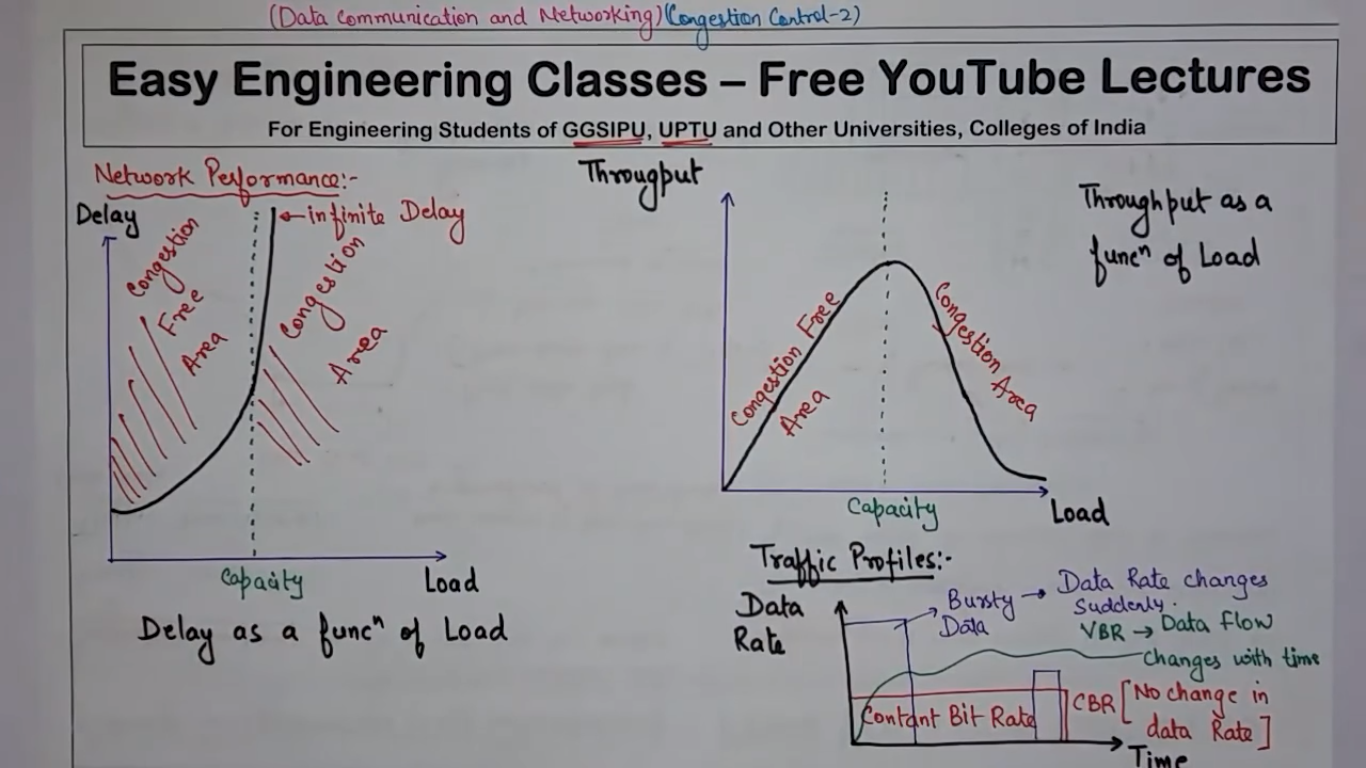 (Data Communication and Networking)(Congestion Control-2)
Easy Engineering Classes – Free YouTube Lectures
For Engineering Students of GGSIPU, UPTU and Other Universities, Colleges of India
Network Performance:-
Delay
infinite Delay
Congestion
Free
Area
Congestion
Area
Capacity
Load
Delay as a funcⁿ of Load
Througput
Throughput as a
funcⁿ of Load
Congestion Free
Area
Congestion Area
Capacity
Load
Traffic Profiles:-
Data
Rate
Bursty → Data Rate changes
Data
Suddenly.
VBR → Data flow
changes with time
Contant Bit Rate
CBR [No change in
data Rate]
Time